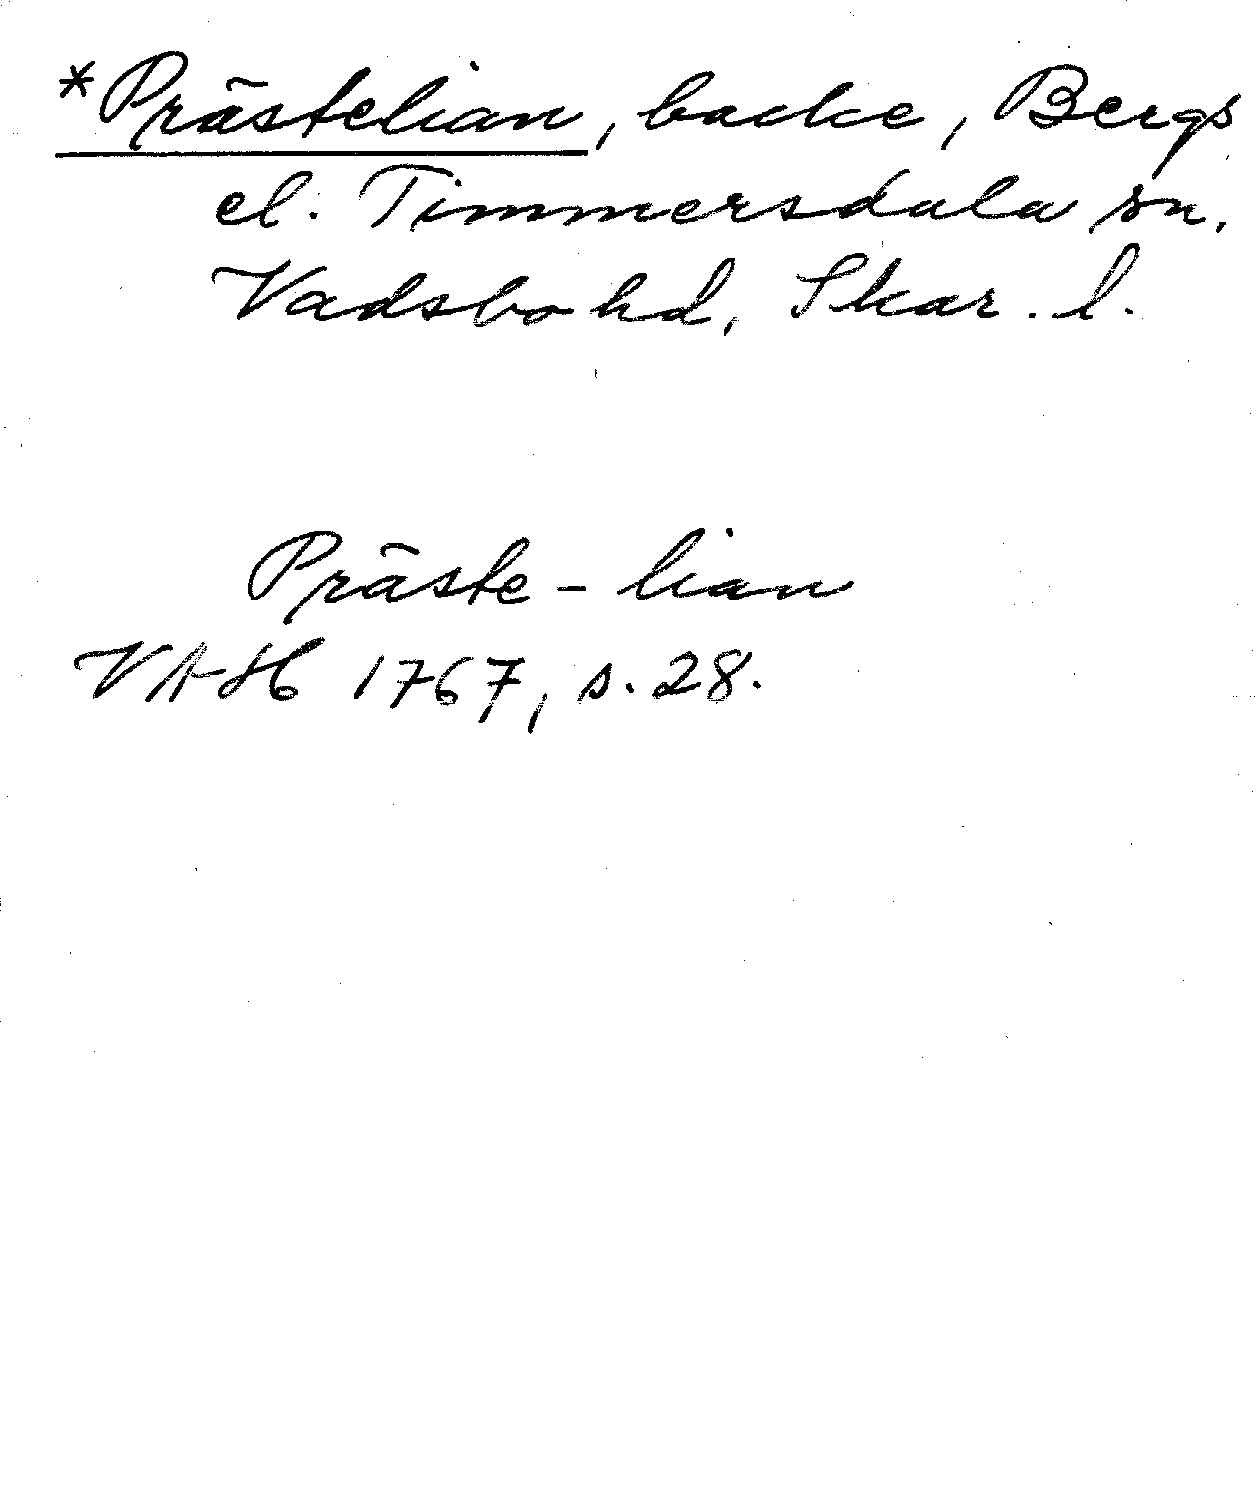 *Prästelian, backe, Bergs
el. Timmersdala sn.
Vadsbo hd, Skar. l.
Präste-lian
VAH 1767, s. 28.